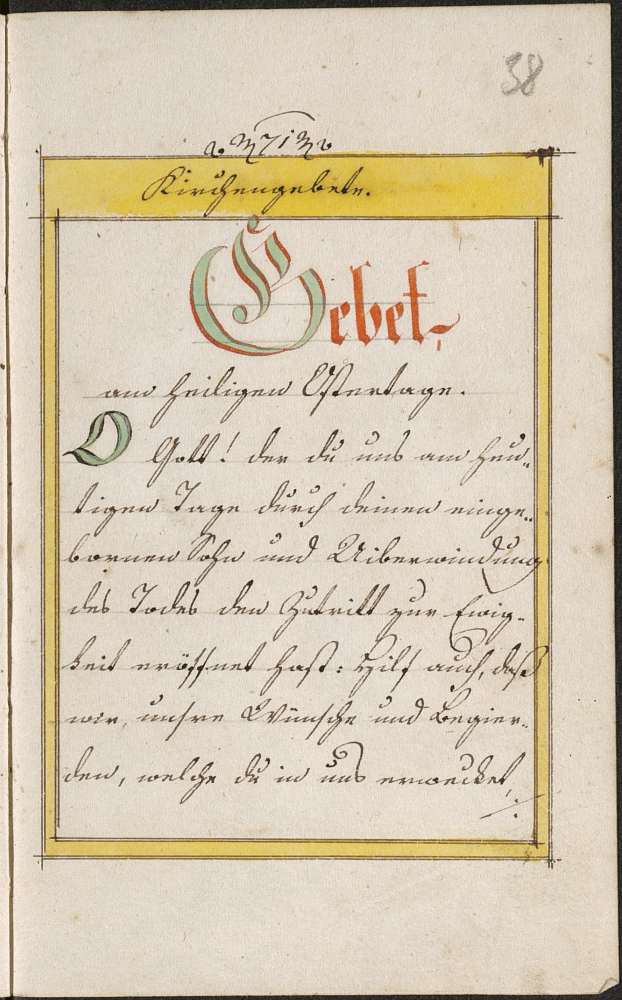 38
71
Kirchengebete.
Gebet
am heiligen Ostertage.
O Gott! der du uns am heu„
tigen Tage durch deinen einge„
bornen Sohn und Uiberwindung
des Todes den Zutritt zur Ewig„
keit eröffnet hast: Hilf auch, daß
wir unsre Wünsche und Begier„
den, welche du in uns erwecket,
/: